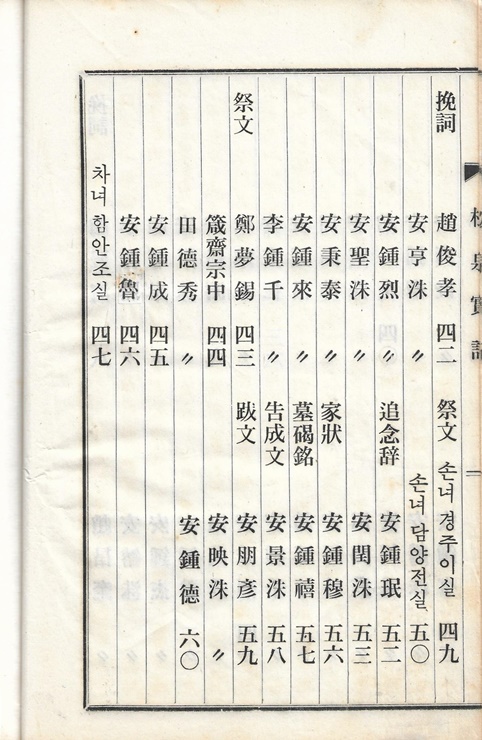 松泉實記
挽詞 趙俊孝 四二
安亨洙 〃
安鍾烈 〃
安聖洙 〃
安秉泰 〃
安鍾來 〃
李鍾千 〃
祭文 鄭夢錫 四三
箴齋宗中 四四
田德秀 〃
安鍾成 四五
安鍾魯 四六
차녀 함안조실 四七
祭文 손녀 경주이실 四九
손녀 담양전실 五〇
追念辞 安鍾珉 五二
安閏洙 五三
家狀 安鍾穆 五六
墓碣銘 安鍾禧 五七
告成文 安景洙 五八
跋文 安朋彦 五九
安映洙 〃
安鍾德 六〇